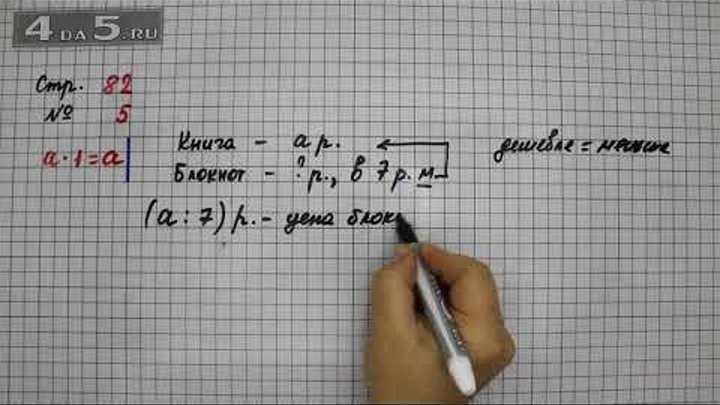 4 DA 5.RU
Стр. 82
№ 5
a · 1 = a
Книга - a р.
Блокнот - ? р., в 7 р. м.
дешевле = меньше
(a : 7) р. - цена блок